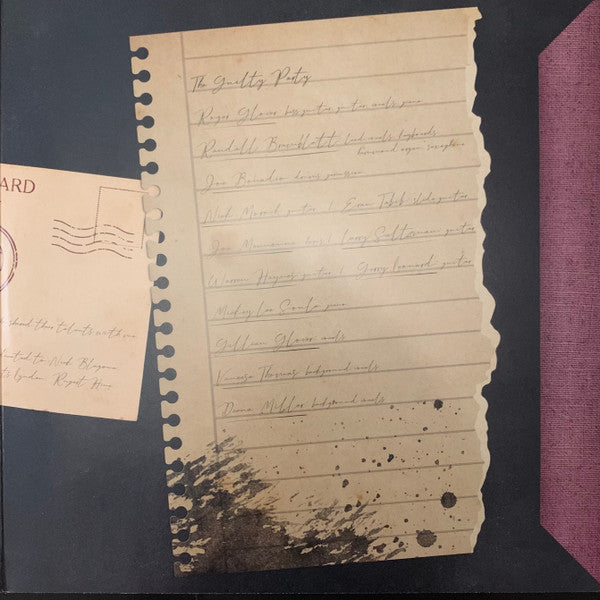 ARD
shared their talents with me
to Nick Blagona
Lyndon, Rupert Hine
The Guilty Party
Roger Glover bass guitar, guitar, vocals, piano
Randall Bramblett lead vocals, keyboards
hammond organ, saxophone
Joe Bonadio drums, percussion
Nick Moroch guitar / Eran Tabib slide guitar
Joe Mennonna / Larry Saltzman guitar
Warren Haynes guitar / Gerry Leonard guitar
Mickey Lee Soule piano
Gillian Glover vocals
Vaneese Thomas background vocals
Diana Miller background vocals